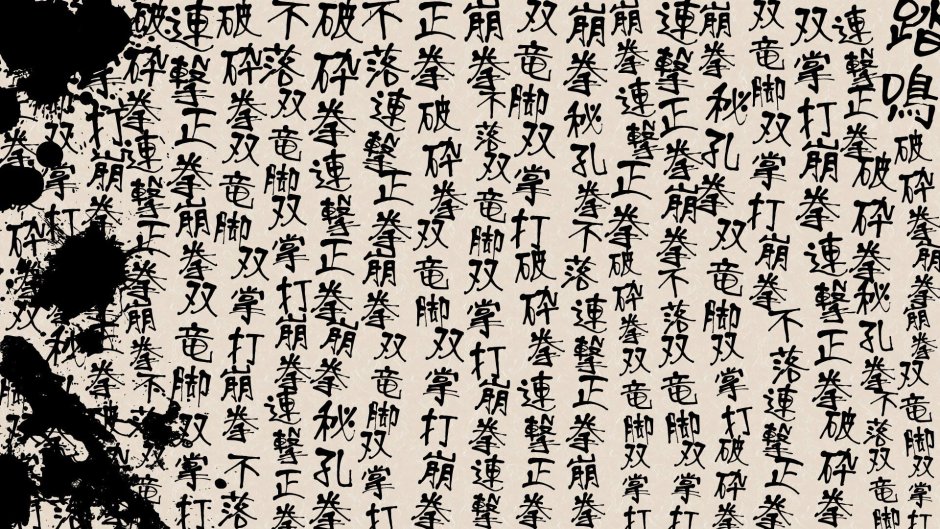 踏鳴破砕拳崩拳崩拳双竜脚双掌打
連撃正拳破砕拳秘孔拳不落双竜脚
双掌打崩拳連撃正拳破砕拳
双竜脚双掌打崩拳不落連撃正拳
崩拳秘孔拳双竜脚双掌打破砕拳
連撃正拳崩拳不落双竜脚双掌打
崩拳連撃正拳破砕拳双竜脚双掌打
崩拳秘孔拳不落連撃正拳崩拳
双竜脚双掌打破砕拳連撃正拳
崩拳不落双竜脚双掌打崩拳連撃
正拳破砕拳双竜脚双掌打崩拳
不落連撃正拳崩拳双竜脚双掌打
破砕拳連撃正拳崩拳秘孔拳
不落双竜脚双掌打崩拳連撃正拳
破砕拳双竜脚双掌打崩拳不落
連撃正拳崩拳双竜脚双掌打
破砕拳連撃正拳崩拳不落双竜
掌打崩拳
双掌打秘
拳砕拳双